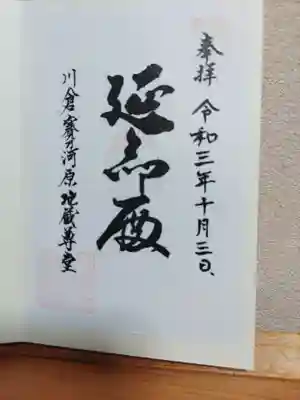 奉拝 令和三年十月三日
延命
川倉賽の河原地蔵尊堂